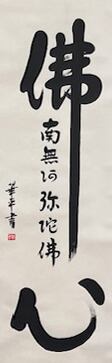 佛心
南無阿弥陀佛
華平書